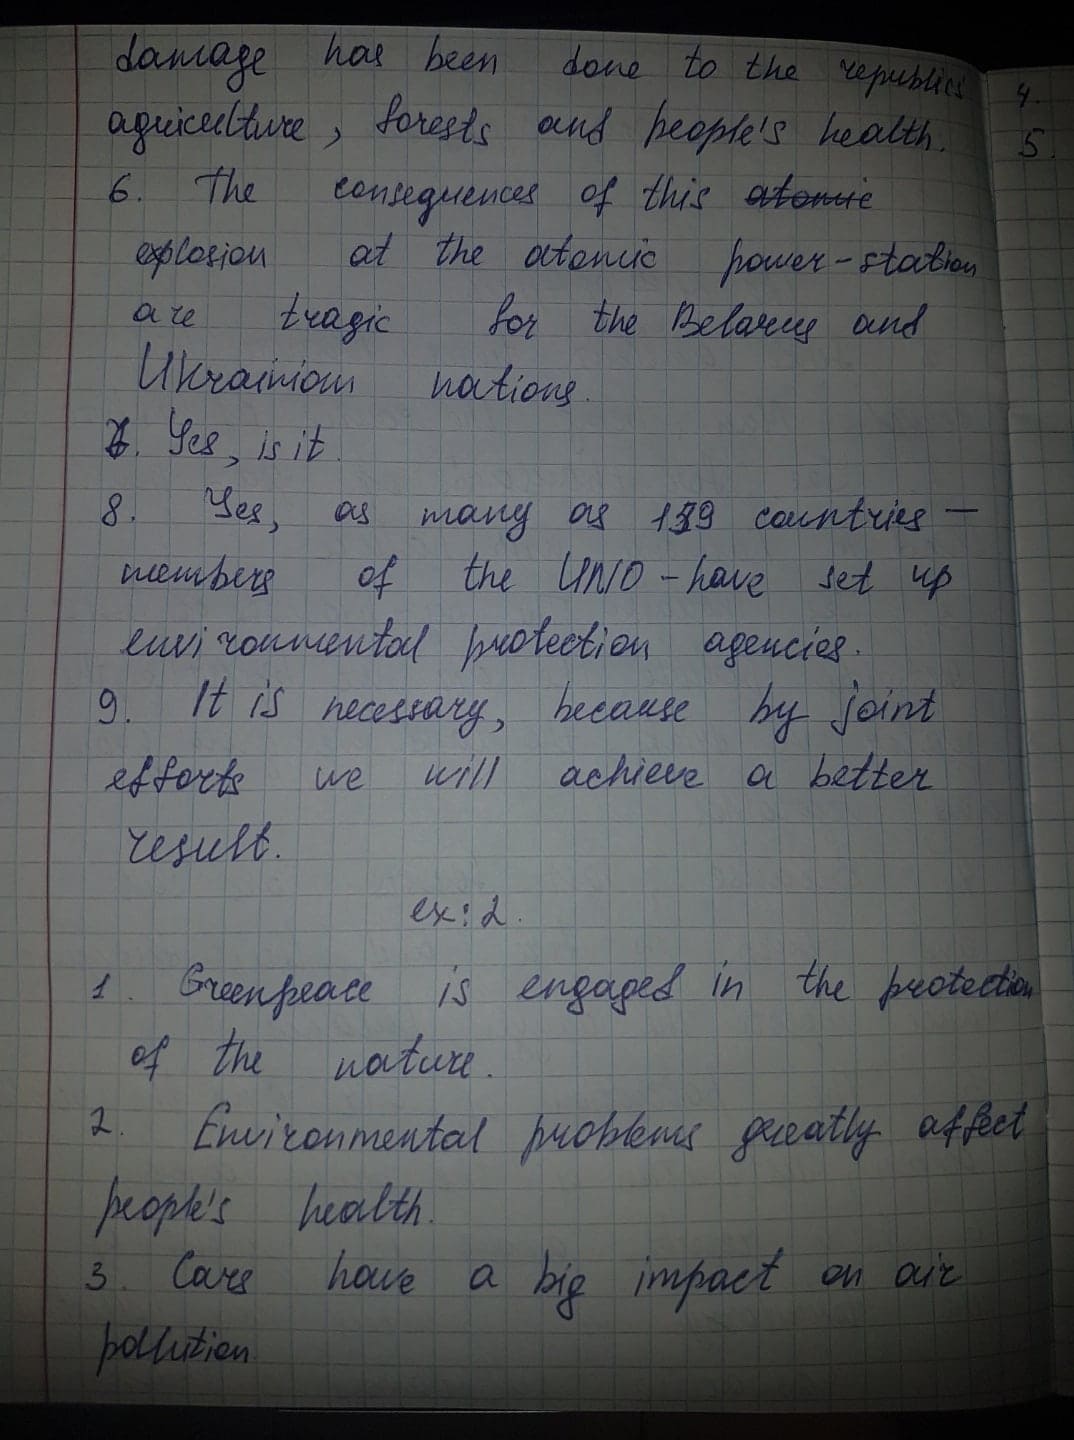 damage has been done to the republics
agriculture, forests and people's health.
6. The consequences of this atomic
explosion at the atomic power-station
are tragic for the Belarus and
Ukrainian nations.
7. Yes, is it.
8. Yes, as many as 159 countries —
members of the UNO - have set up
environmental protection agencies.
9. It is necessary, because by joint
efforts we will achieve a better
result.
ex: 2.
1. Greenpeace is engaged in the protection
of the nature.
2. Environmental problems greatly affect
people's health.
3. Cars have a big impact on air
pollution
4.
5.